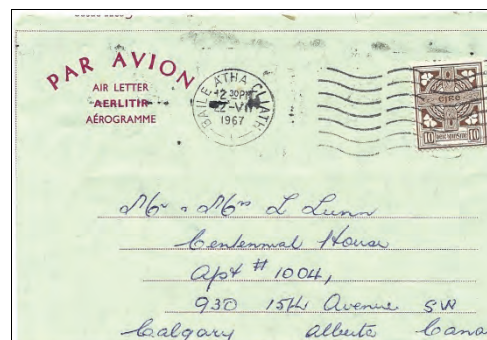 PAR AVION
AIR LETTER
AERLITIR
AÉROGRAMME
BAILE ATHA CLIATH
12 30PM
1967
éire
10 10
Mr & Mrs L Lunn
Centennial House
Apt # 1004,
930 15th Avenue SW
Calgary Alberta Cana